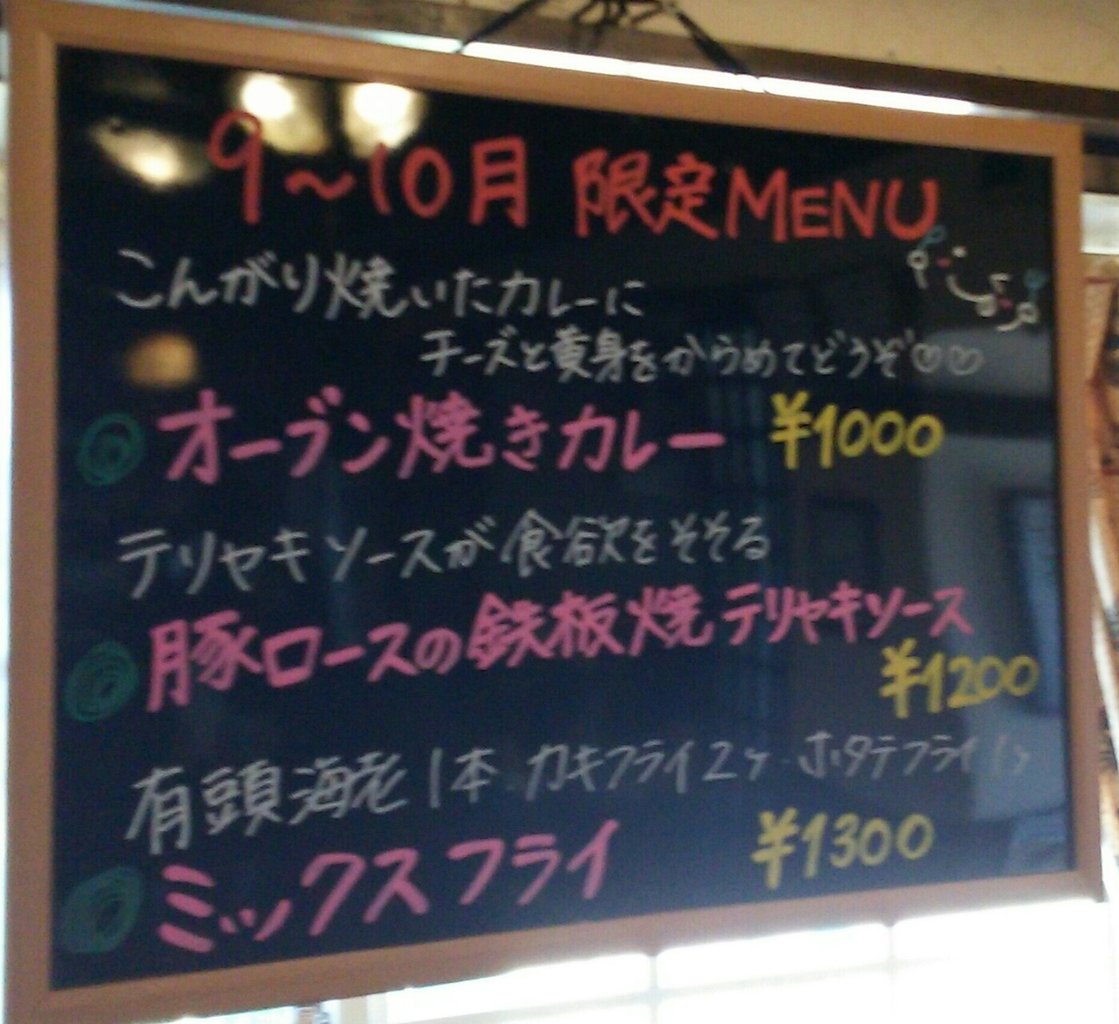 9～10月 限定MENU
こんがり焼いたカレーに
チーズと黄身をからめてどうぞ♡♡
オーブン焼きカレー ¥1000
テリヤキソースが食欲をそそる
豚ロースの鉄板焼テリヤキソース
¥1200
有頭海老1本 カキフライ2ヶ ホタテフライ1ヶ
ミックスフライ ¥1300